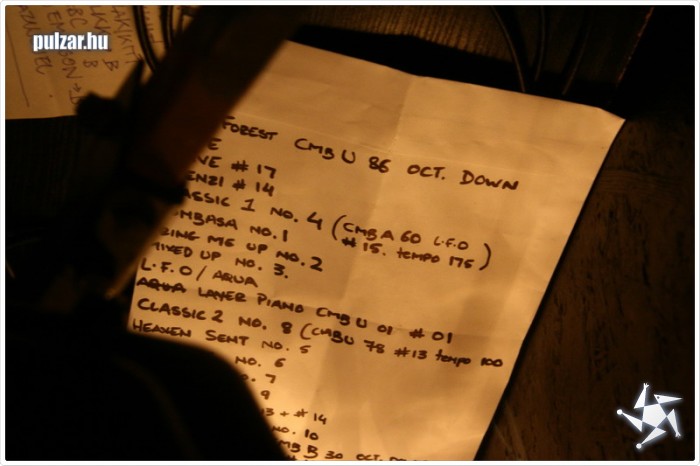 pulzar.hu
FOREST CMB U 86 OCT. DOWN
E
VE # 17
ENZI # 14
ASSIC 1 NO. 4 (CMB A 60 L.F.O
# 15. tempo 175)
MBASA NO. 1
ING ME UP NO. 2
MIXED UP NO. 3.
L.F.O / AQUA
AQUA LAYER PIANO CMB U 01 # 01
CLASSIC 2 NO. 8 (CMB U 78 # 13 tempo 100
HEAVEN SENT NO. 5
NO. 6
. 7
9
13 + # 14
NO. 10
MB B 30 OCT. DO